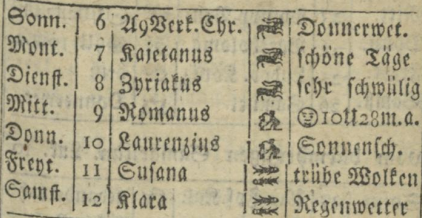 Sonn. 6 A9Verk.Chr. Donnerwet.
Mont. 7 Kajetanus schöne Täge
Dienst. 8 Zyriakus sehr schwülig
Mitt. 9 Romanus 10U28m.a.
Donn. 10 Laurenzius Sonnensch.
Freyt. 11 Susana trübe Wolken
Samst. 12 Klara Regenwetter